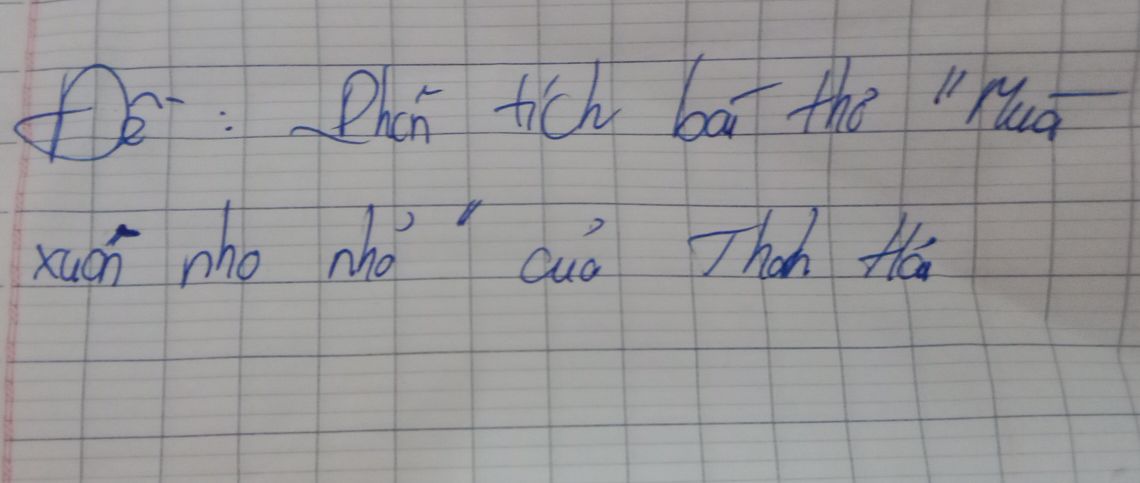 Đề : Phân tích bài thơ "Mùa
xuân nho nhỏ" của Thanh Hải